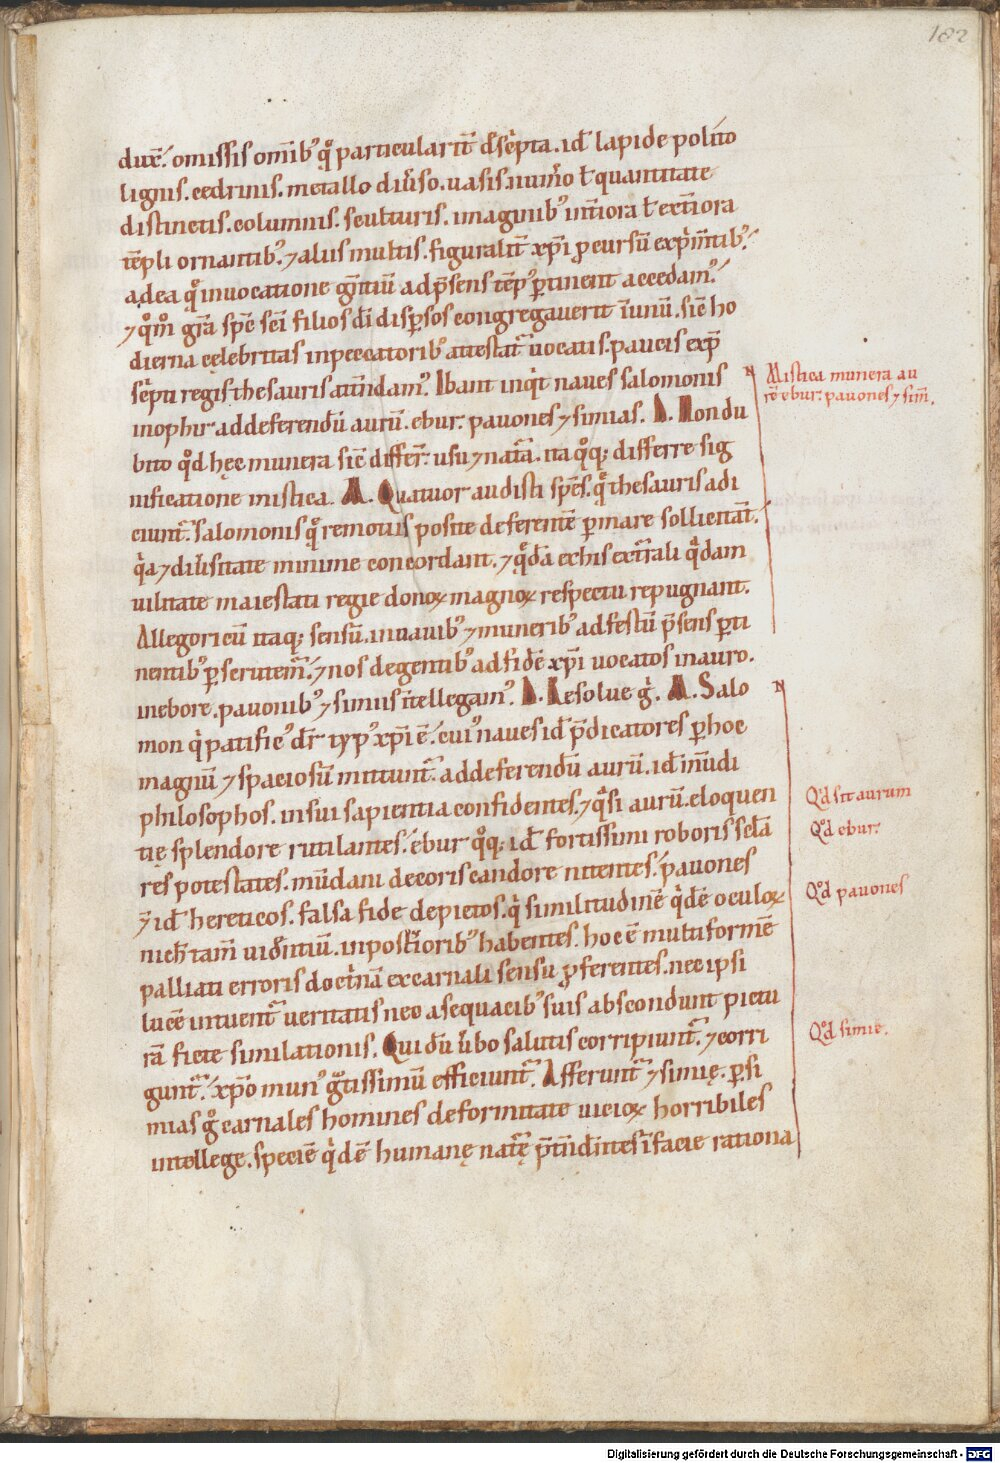 182
duxe᷒. omissis omībꝰ q̊ particularit̄ dſc̓pta. id̄ lapide polito
lignis. cedrinis. metallo diũso. uasis. num̃o ł quantitate
distinctis. columnis. sculturis. imaginibꝰ int̃iora ł ext̃iora
tēpli ornantibꝰ. ⁊ aliis multis. figuralit̄ xp̄i ꝑcursū exp̓m̄tibꝰ.
ad ea q̊ in uocatione gn̄tiū ad p̄sens tēpꝰ ꝑtinent accedamꝰ.
⁊ q̊m̊ gr̄a sp̄c sc̄i filios dī disꝑsos congregauerit ī unū. sic̄ ho
dierna cęlebritas in peccatoribꝰ attestat̄ uocatis. paucis exp̄
sc̓pti regis thesauris att̄ndamꝰ. Ibant inq̓t naues salomonis
in ophir ad deferendū aurū. ebur. pauones ⁊ simias. D. Non du
bito q̊d hęc munera sic̄ differ̄t usu ⁊ nat̄a. ita q̊q; differre sig
nificatione mistica. M. Quatuor audisti sp̄es. q̊ thesauris adi
ciunt̄ salomonis q̊ remotis posite deferent̄ ꝑ mare sollicitat̄.
q̓a ⁊ diũsitate minime concordant. ⁊ q̊dā ex his cet̄rali q̊dam
uilitate maiestati regie donoꝝ magnoꝝ respectu repugnant.
Allegoricū itaq; sensū. in nauibꝰ ⁊ muneribꝰ ad festū p̄sens ꝑti
nentibꝰ ꝑscrutem̄. ⁊ nos degentibꝰ ad fidē xp̄i uocatos in auro.
in ebore. pauonibꝰ ⁊ simiis ītellegamꝰ. D. Resolue g̓. M. Salo
mon q̓ patificꝰ dr̄ typꝰ xp̄i ē. cuiꝰ naues id̄ p̄dicatores ꝑ hoc
magnū ⁊ spaciosū mittunt̄. ad deferendū aurū. id̄ mūdi
philosophos. in sui sapientia confidentes. ⁊ q̊si aurū. eloquen
tię splendore rutilantes. ebur q̊q; id̄ fortissimi roboris sc̄la
res potestates. mūdani decoris candore nitentes. pauones
⁊ id̄ hereticos. falsa fide depictos. q̓ similitudinē q̓dē oculoꝝ
nich̄ tam̄ uid̄ntiū. in post̃ioribꝰ habentes. hoc ē multiformē
palliati erroris doct̓nā ex carnali sensu ꝓferentes. nec ipsi
lucē intuent̄ ueritatis nec a sequacibꝰ suis abscondunt pictu
rā ficte similationis. Qui dū ũbo salutis corripiunt̄. ⁊ corri
gunt̄. xp̄o munꝰ g̊tissimū efficiunt̄. Afferunt̄ ⁊ simię. ꝑ si
mias g̊ carnales homines deformitate uicioꝝ horribiles
intellege. speciē q̓dē humanę nat̄ę p̄tēd̄ntes ī facie rationa
Mistica munera au
rē ebur. pauones ⁊ sim̄.
Q̊d sit aurum
Q̊d ebur.
Q̊d pauones
Q̊d simie.
Digitalisierung gefördert durch die Deutsche Forschungsgemeinschaft - DFG